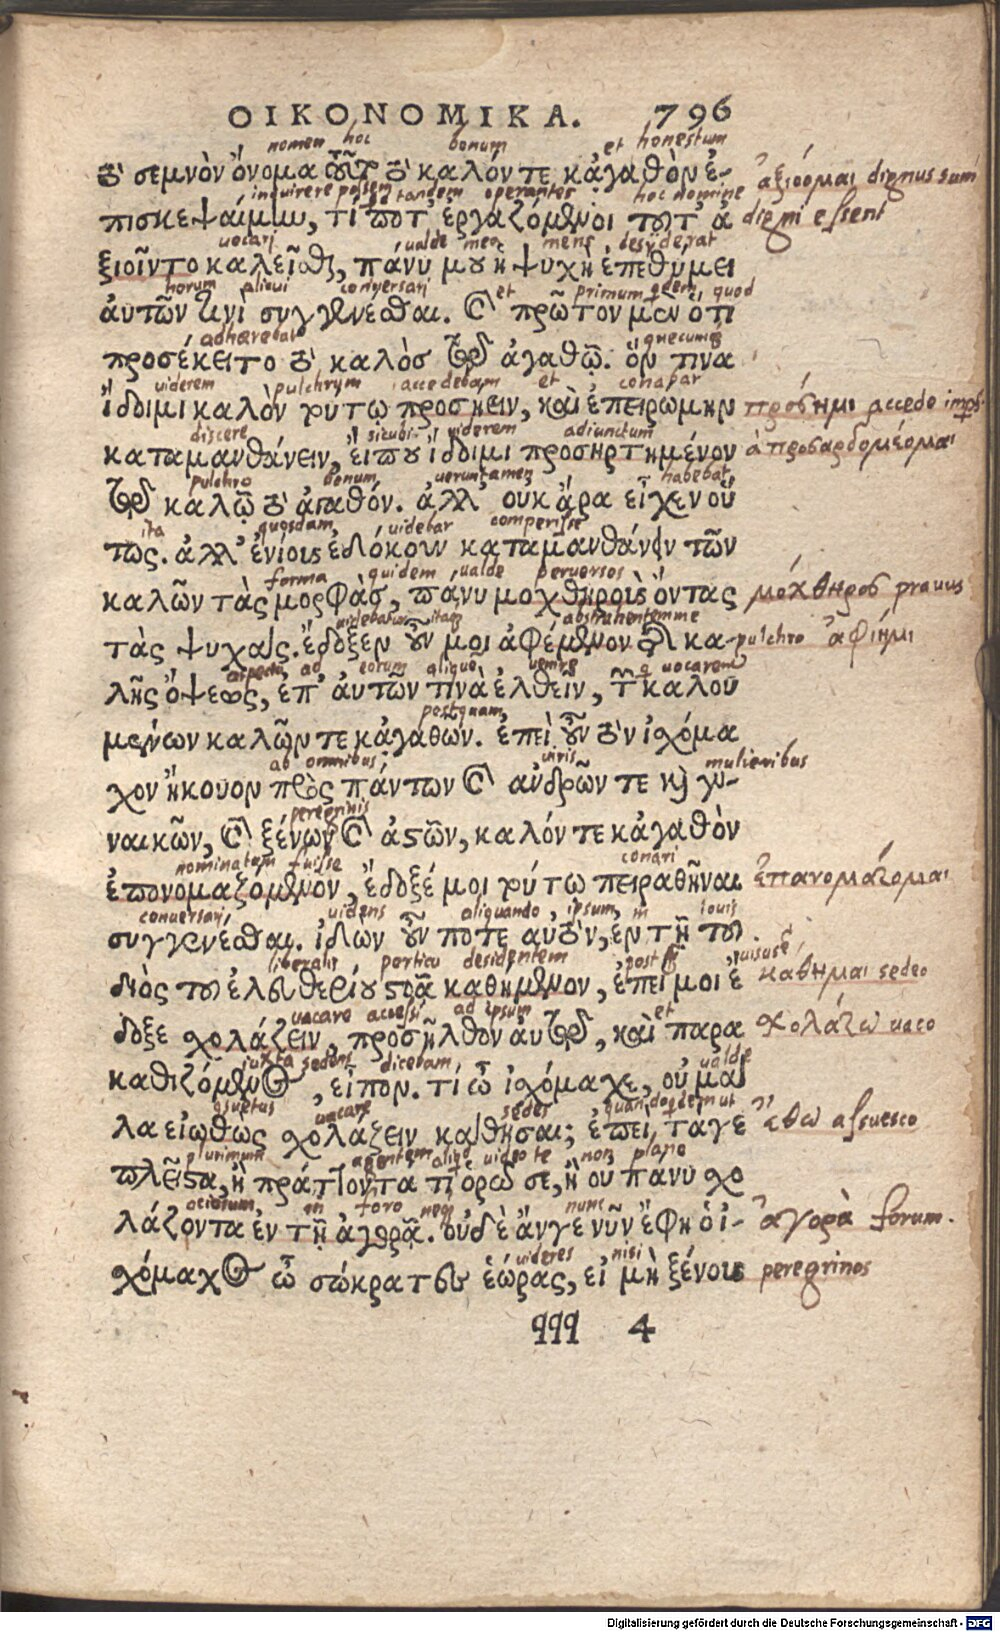 ΟΙΚΟΝΟΜΙΚΑ. 796
nomen hoc bonum et honestum
τὸ σεμνὸν ὄνομα τοῦτο τὸ καλόν τε κἀγαθὸν ἐ- ἀξιόομαι dignus sum
inquirere possem tandem operantes hoc nomine
πισκεψαίμην, τί ποτ' ἐργαζόμενοι τοῦτ' ἀ digni essent
uocari ualde mea mens desyderat
ξιοῖντο καλεῖσθαι, πάνυ μου ἡ ψυχὴ ἐπεθύμει
horum alicui conuersari et primum qdem quod
αὐτῶν τινὶ συγγενέσθαι. καὶ πρῶτον μὲν ὅτι
adhaerebat quecumq
προσέκειτο τὸ καλὸσ τῷ ἀγαθῷ. ὅν τινα
uiderem pulchrum accedebam et conabar
ἴδοιμι καλὸν τούτῳ προσῄειν, καὶ ἐπειρώμην πρόσημι accedo
discere sicubi uiderem adiunctum
καταμανθάνειν, εἴ που ἴδοιμι προσηρτημένον
pulchro bonum ueruntamen habebat
τῷ καλῷ τὸ ἀγαθόν. ἀλλ' οὐκ ἄρα εἶχεν οὕ
ita quosdam uidebar comperisse
τως. ἀλλ' ἐνίους ἐδόκουν καταμανθάνειν τῶν
forma quidem ualde peruersos
καλῶν τὰς μορφὰσ, πάνυ μοχθηροὺς ὄντας μόχθηρος prauus
uidebatur itaq abstrahentemme
τὰς ψυχάς. ἔδοξεν οὖν μοι ἀφέμενον τῆς κα- pulchro ἀφίημι
aspectu ad eorum aliquē uenire q uocarent
λῆς ὄψεως, ἐπ' αὐτῶν τινὰ ἐλθεῖν, τῶν καλου
postquam
μένων καλῶν τε κἀγαθῶν. ἐπεὶ οὖν τὸν ἰχόμα
ab omnibus uiris mulieribus
χον ἤκουον πρὸς πάντων καὶ ἀνδρῶν τε καὶ γυ-
peregrinis
ναικῶν, καὶ ξένων καὶ ἀστῶν, καλόν τε κἀγαθὸν
nominatum fuisse conari
ἐπονομαζόμενον, ἔδοξέ μοι τούτῳ πειραθῆναι ἐπανομάζομαι
conuersari uidens aliquando ipsum in iouis
συγγενέσθαι. ἰδὼν οὖν ποτε αὐτὸν, ἐν τῇ τοῦ
liberalis porticu desidentem post uisus ē
διὸς τοῦ ἐλευθερίου στοᾷ καθήμενον, ἐπεί μοι ἔ κάθημαι sedeo
uacare accessi ad ipsum et
δοξε χολάζειν, προσῆλθον αὐτῷ, καὶ παρα χολάζω uaco
iuxta sedens dicebam ualde
καθιζόμενος, εἶπον. τί ὦ ἰχόμαχε, οὐ μά
assuetus uacare sedes quandoqdem ut
λα εἰωθὼς χολάζειν κάθησαι; ἐπεί, τά γε ἔθω assuesco
plurimum agentem aliqd uideo te non plane
πλεῖστα, ἢ πράττοντά τι ὁρῶ σε, ἢ οὐ πάνυ χο
ociosum in foro neq nunc
λάζοντα ἐν τῇ ἀγορᾷ. οὐδὲ ἄν γε νῦν ἔφη ὁ ἰ- ἀγορὰ forum.
uideres nisi
χόμαχος ὦ σώκρατες ἑώρας, εἰ μὴ ξένους peregrinos
qqq 4
Digitalisierung gefördert durch die Deutsche Forschungsgemeinschaft - DFG